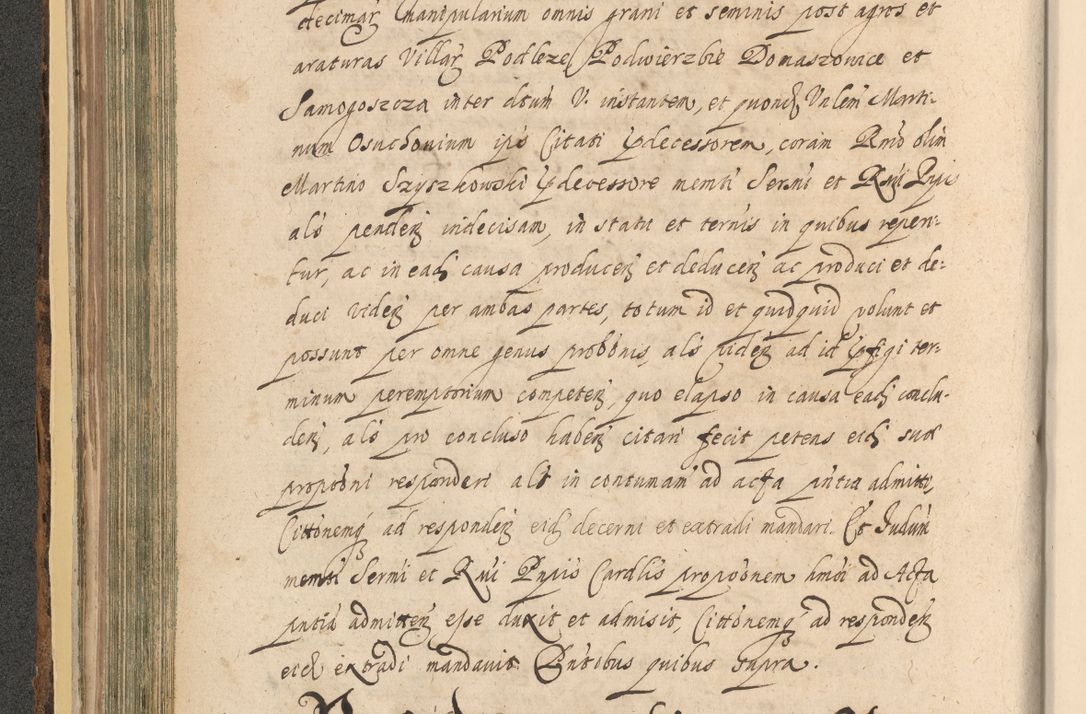 decimar̃ manipularium omnis grani et seminis post agros et
araturas Villar̃ Podleze Podwierzbie Domaszowice et
Samogoszcza inter dtum V. instantem, et quond Valen Marti-
num Osuchovium ips Citati pdecessorem, coram Rmo olim
Martino Szyszkowski pdecessore memti Sermi et Rmi Pnpis
als penden indecisam, in statu et ternis in quibus reperi-
tur, ac in ead causa producen et deducen ac produci et de-
duci viden per ambas partes, totum id et quidquid volunt et
possunt per omne genus probonis, als viden ad id pfigi ter-
minum peremptorium competen, quo elapso in causa ead conclu-
den, als pro concluso haben citari fecit petens eid sua
proponi responderi als in contumam ad acta pntia admitti,
Cittonemq ad responden eid decerni et extradi mandari. Et Judium
memti Sermi et Rmi Pnpis Cardlis propoonem hmoi ad Acta
pntia admitten esse duxit et admisit, Cittonemq ad responden
eid extradi mandavit. Pntibus quibus supra.